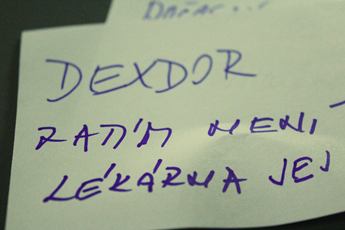 DEXDOR
ZATÍM NENÍ -
LÉKÁRNA JEJ